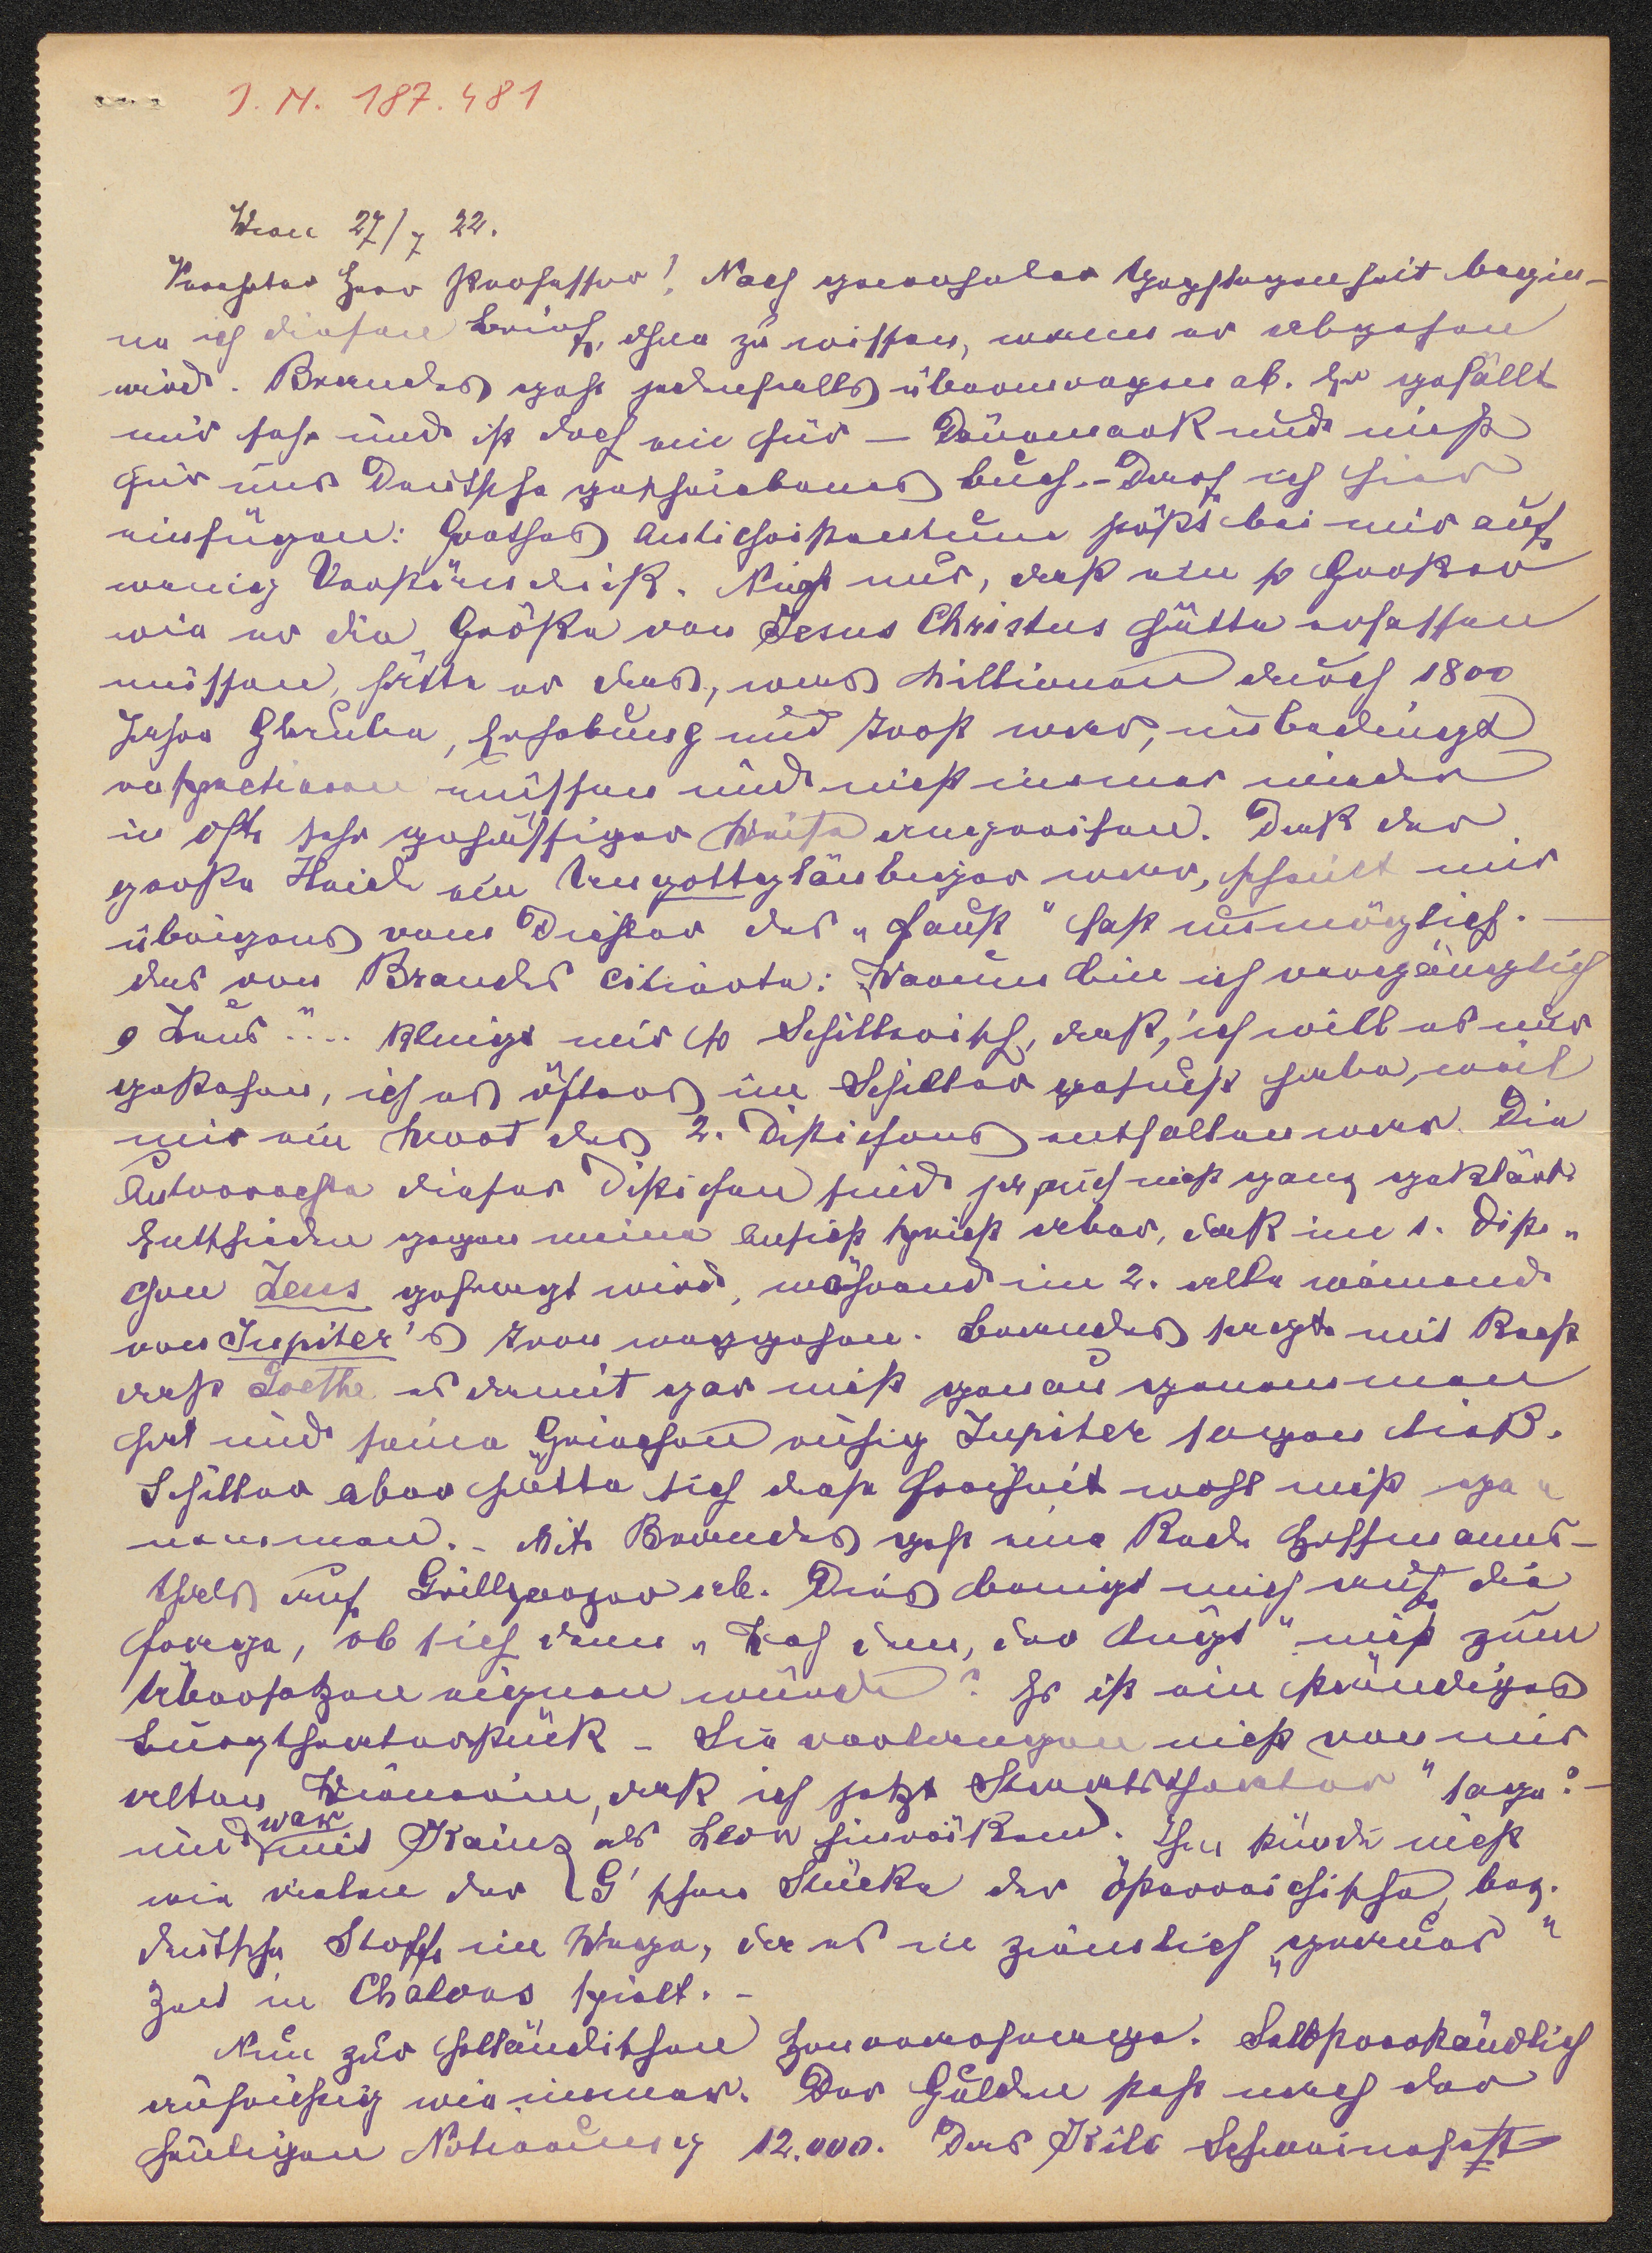 J. N. 187.481
Wien 27/7 22.
Verehrter Herr Professor! Nach generöser Gepflogenheit begin-
ne ich diesen Brief, ohne zu wissen, wann er abgehen
wird. Brandes geht jedenfalls übermorgen ab. Er gefällt
mir sehr und ist doch ein für – Dänemark und nicht
für uns Deutsche geschriebenes Buch. – Darf ich hier
einfügen: Goethes Antichristentum stößt bei mir auf
wenig Verständnis. Nicht nur, daß ein so Großer
wie er die Größe von Jesus Christus hätte erfassen
müssen, hätte er das, was Millionen durch 1800
Jahre Glaube, Erhebung und Trost war, unbedingt
respectieren müssen und nicht immer wieder
in oft sehr gehässiger Weise angreifen. Daß der
große Heide ein Nurgottgläubiger war, scheint mir
übrigens vom Dichter des „Faust" fast unmöglich. –
das von Brandes citierte: „Warum bin ich vergänglich
o Zeus" .... klingt mir so Schillerisch, daß, ich will es nur
gestehen, ich es öfters im Schiller gesucht habe, weil
mir ein Wort des 2. Distichons entfallen war. Die
Autorrechte dieser Distichen sind ja auch nicht ganz geklärt.
Entschieden gegen meine Ansicht spricht aber, daß im 1. Disti-
chon Zeus gefragt wird, während im 2. alle weinend
von Jupiter's Tron weggehen. Brandes sagt mit Recht
daß Goethe es damit gar nicht genau genommen
hat und seine Griechen ruhig Jupiter sagen ließ.
Schiller aber hätte sich diese Freiheit wohl nicht ge-
nommen. – Mit Brandes geht eine Rede Hoffmanns-
thals auf Grillparzer ab. Dies bringt mich auf die
Frage, ob sich denn „Weh dem, der lügt" nicht zum
Übersetzen eignen würde? Es ist ein ständiges
Burgtheaterstück – Sie verlangen nicht von mir
alten Wienerin, daß ich jetzt „Staatstheater" sage? –
und war mit Kainz als Leon hinreißend. Ihm stünde nicht
wie vielen der G'schen Stücke der österreichische, bez.
deutsche Stoff im Wege, da es ja ziemlich „genau"
zu in Chalons spielt. –
Nun zur holländischen Honorarfrage. Selbstverständlich
aufrichtig wie immer. Der Gulden steht nach der
heutigen Notierung 12.000. Das Kilo Schweinefett